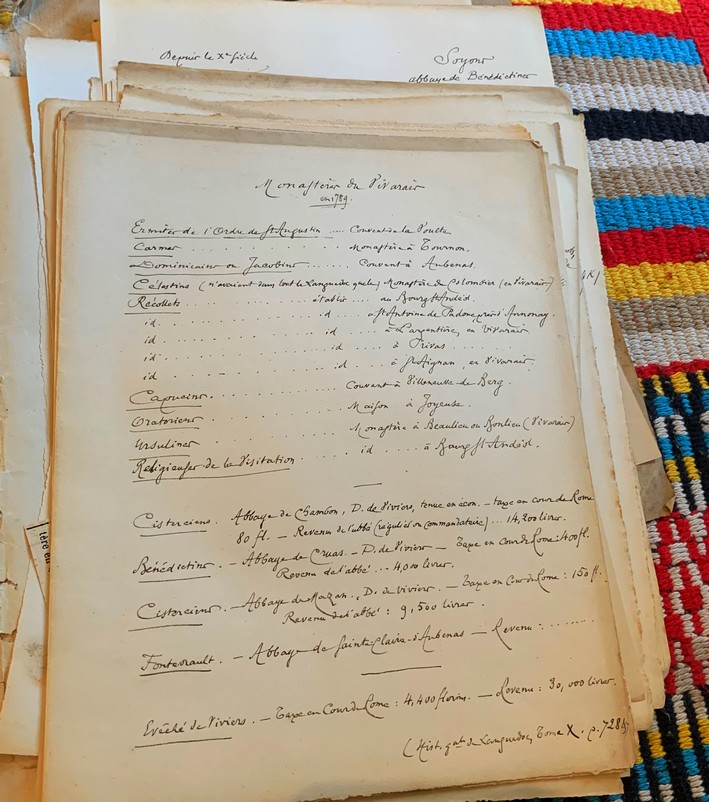 Depuis le Xe siècle
Soyons
abbaye de Bénédictines
Monastères du Vivarais
en 1789.
Ermites de l'Ordre de St Augustin .... Couvent de la Voulte
Carmes . . . . . . . . Monastère à Tournon.
Dominicains ou Jacobins ....... Couvent à Aubenas.
Célestins (n'avaient dans tout le Languedoc que le) Monastère de Colombier (en Vivarais)
Récollets ........ établis .... au Bourg St Andéol.
id. . . . . . . id . . . à St Antoine de Padoue près d'Annonay.
id . . . . . . . id . . . à Largentière, en Vivarais
id . . . . . . . id . . . à Privas
id . . . . . . . id . . . à St Agnan, en Vivarais.
Capucins. . . . . . . . Couvent à Villeneuve de Berg.
Oratoriens . . . . . . . Maison à Joyeuse.
Ursulines . . . . . . . Monastère à Beaulieu ou Bonlieu (Vivarais)
Religieuses de la Visitation . . . . id . . . . à Bourg St Andéol.
Cisterciens. Abbaye de Chambon, D. de Viviers, tenue en écon. — taxe en cour de Rome
80 fl. — Revenu de l'abbé (régulier ou commendataire) ... 14,200 livres.
Bénédictins. — Abbaye de Cruas. — D. de Viviers — Taxe en cour de Rome: 400 fl.
Revenu de l'abbé ... 4,000 livres.
Cisterciens. — Abbaye de Mazan, D. de Viviers. — Taxe en Cour de Rome : 150 fl.
Revenu de l'abbé : 9,500 livres.
Fontevrault. — Abbaye de Sainte Claire d'Aubenas — Revenu : .......
Evêché de Viviers. — Taxe en Cour de Rome : 4,400 florins. — Revenu : 30,000 livres.
(Hist. gnt de Languedoc, Tome X. p. 728